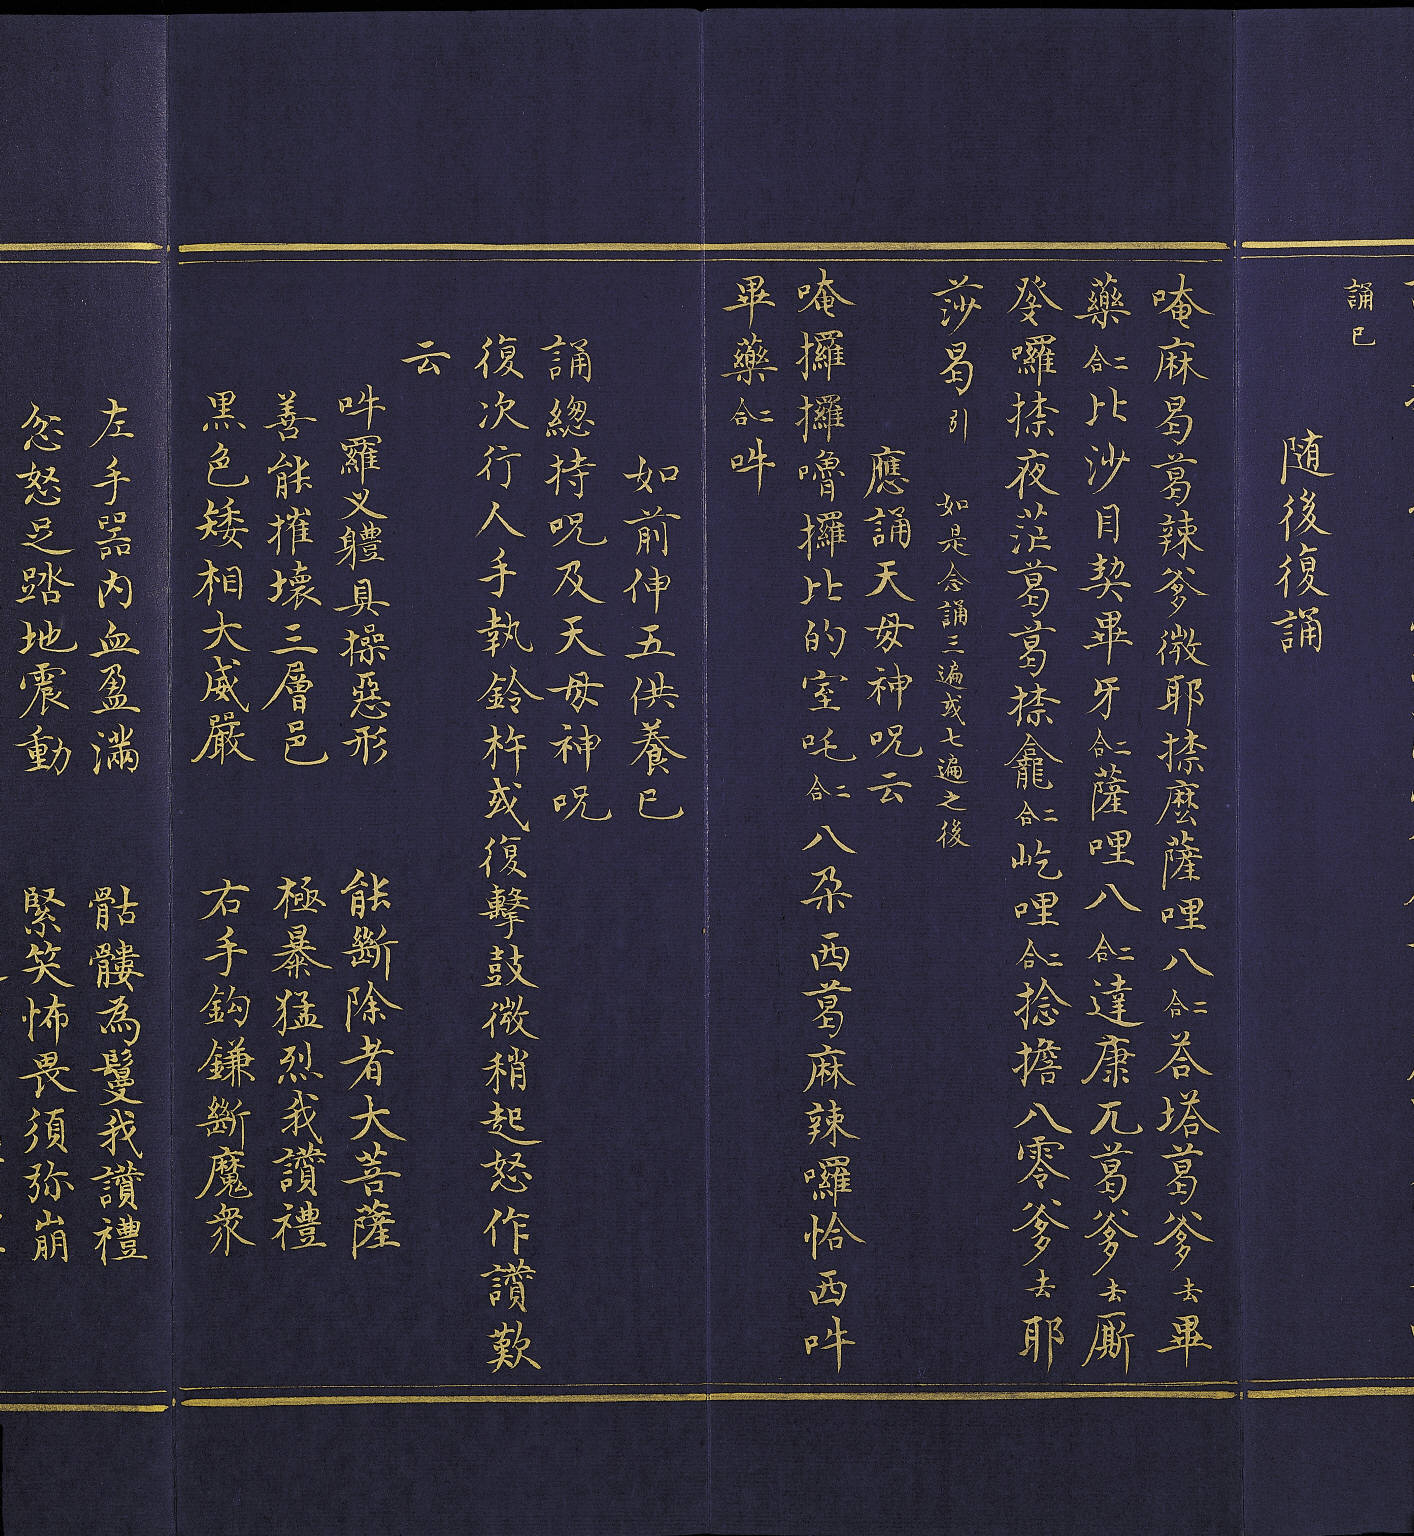 誦已
随後復誦
唵麻曷葛辣爹微耶捺麽薩哩八二合荅塔葛爹去畢
藥二合比沙目契畢牙二合薩哩八二合達康兀葛爹去厮
癹囉捺夜茫葛葛捺龕二合屹哩二合捻擔八零爹去耶
莎曷引 如是念誦三遍或七遍之後
應誦天母神呪云
唵攞攞嚕攞比的室吒二合八朶西葛麻辣囉恰西吽
畢藥二合吽
如前伸五供養已
誦緫持呪及天母神呪
復次行人手執鈴杵或復擊鼓微稍起怒作讃歎
云
吽羅义軆具操惡形 能斷除者大菩薩
善能摧壞三層邑 極暴猛烈我讃禮
黒色矮相大威嚴 右手鈎鎌斷魔衆
左手噐内血盈滿 骷髏為鬘我讃禮
忿怒足踏地震動 緊笑怖畏須弥崩